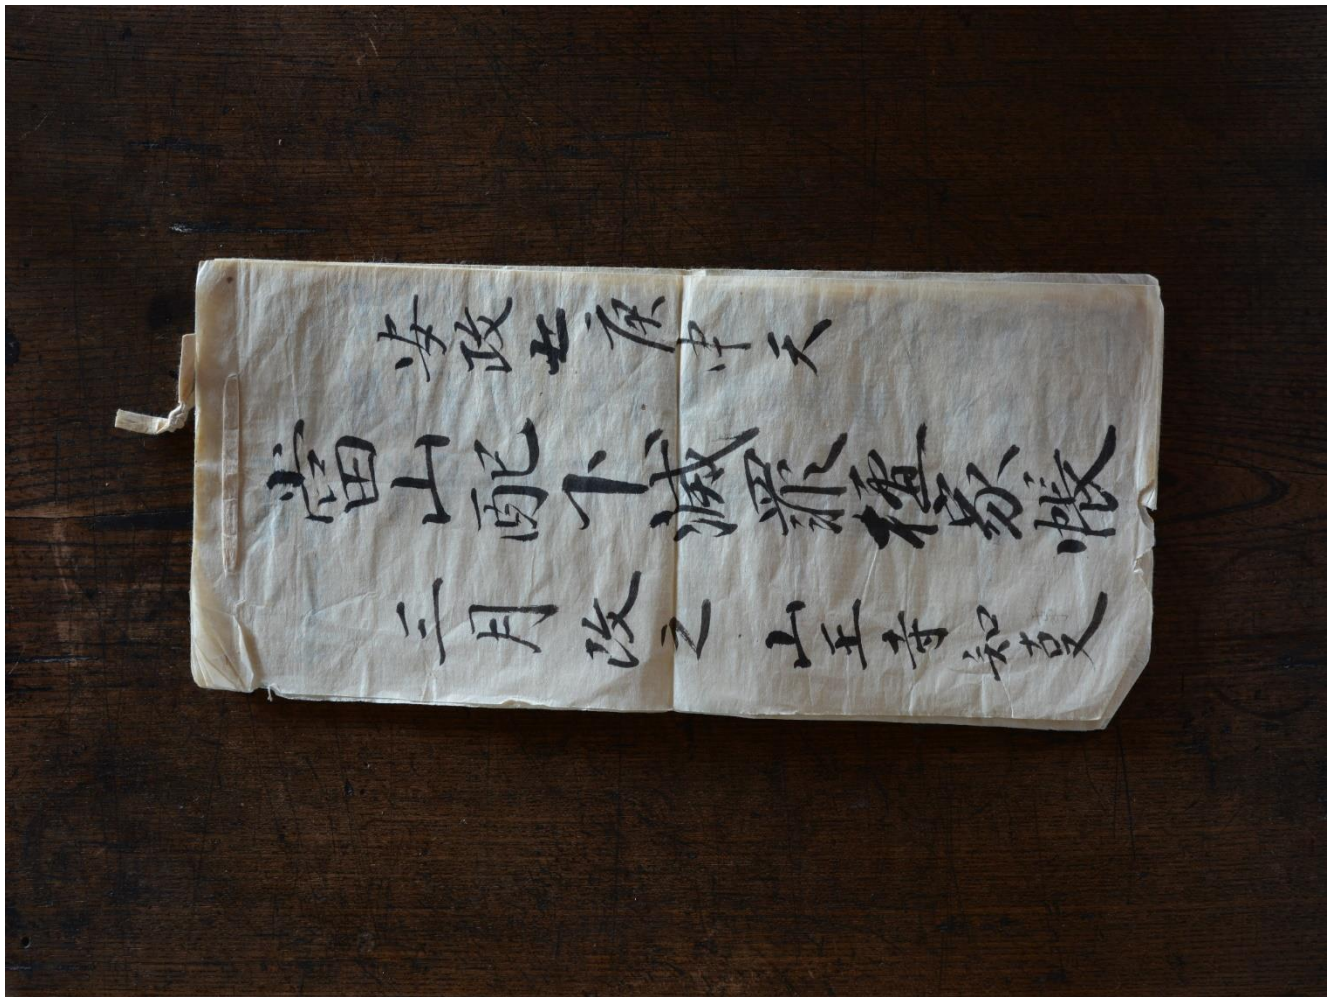 安政七庚申天
當山配下滅罪檀家帳
三月改之 山王寺知叓